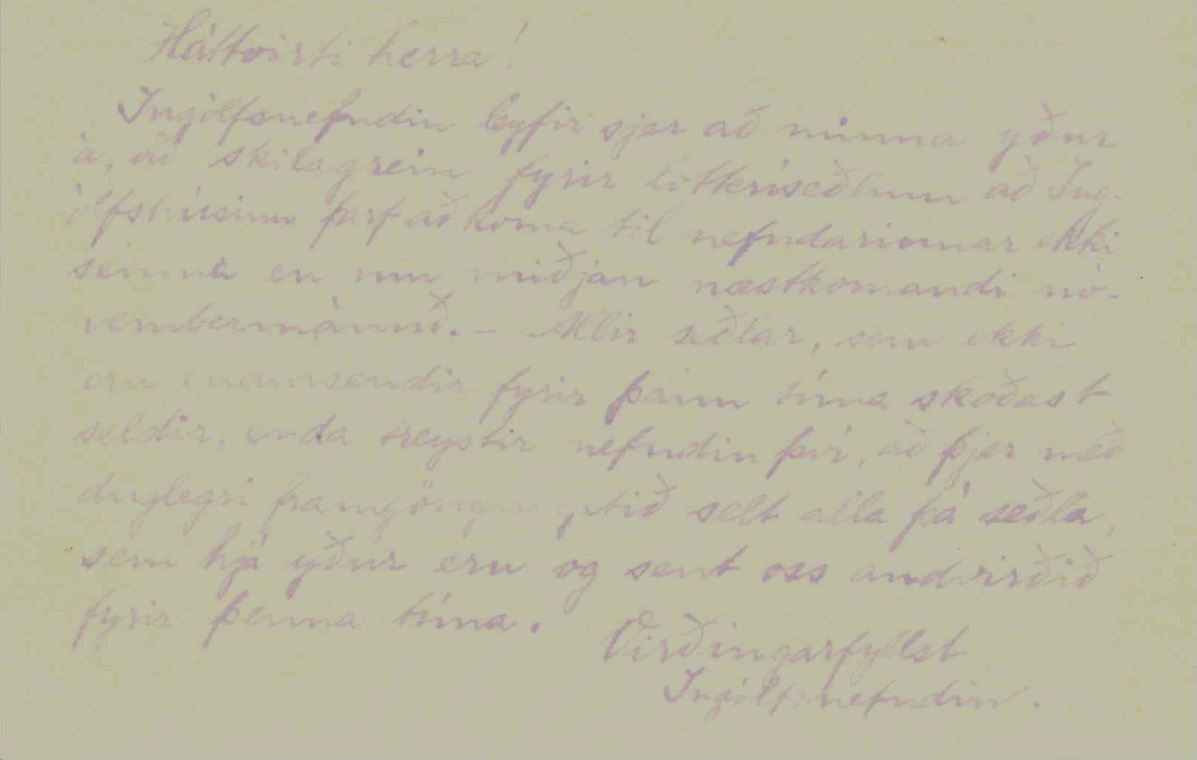 Háttvirti herra!
Ingólfsnefndin leyfir sjer að minna yður
á, að skilagrein fyrir lotteríseðlum að Ing-
ólfshúsinu þarf að koma til nefndarinnar ekki
seinna en um miðjan næstkomandi nó-
vembermánuð. - Allir seðlar, sem ekki
eru endursendir fyrir þann tíma skoðast
seldir, enda treystir nefndin því, að þjer með
duglegri framgöngu getið selt alla þá seðla,
sem hjá yður eru og sent oss andvirðið
fyrir þenna tíma.
Virðingarfyllst
Ingólfsnefndin.